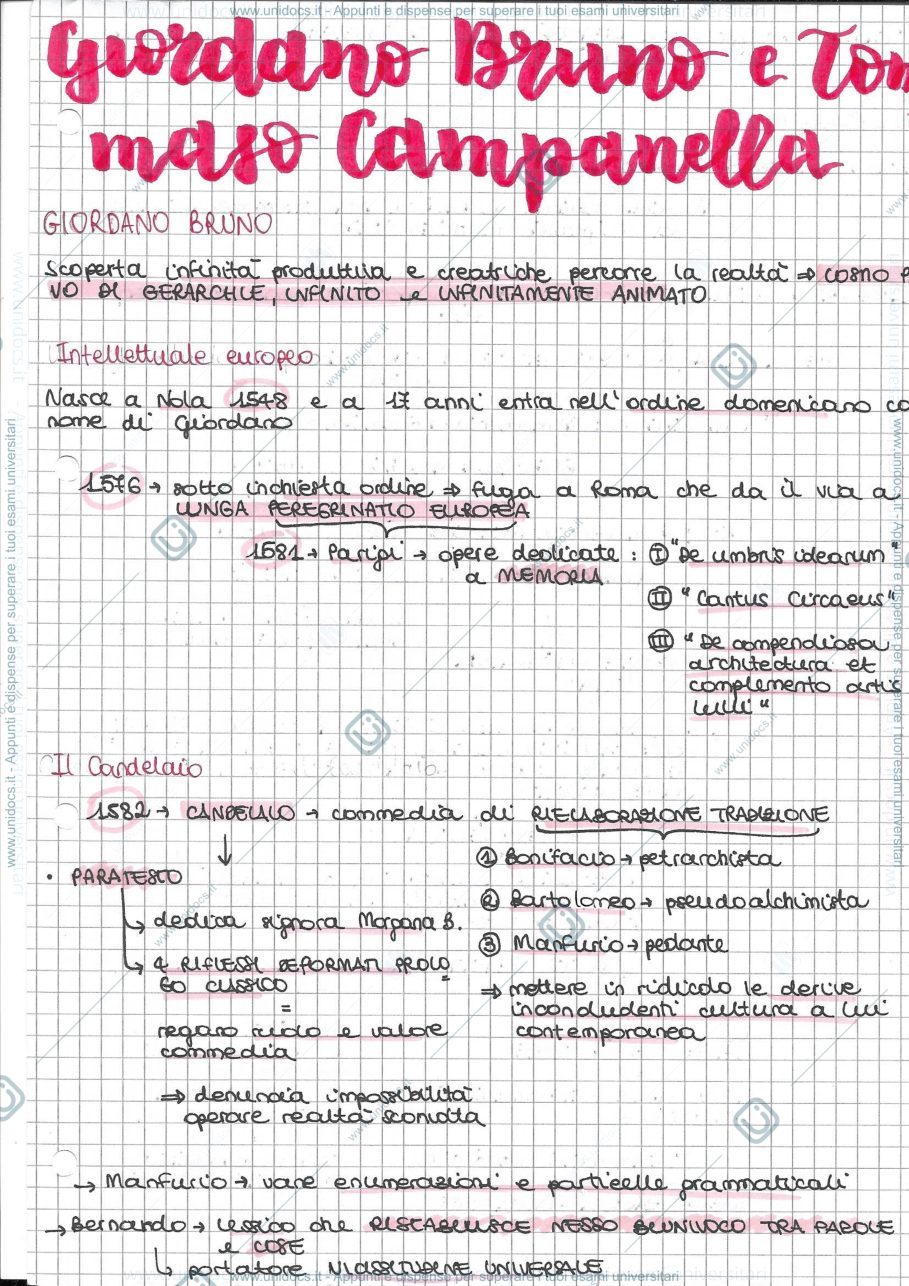 www.unidocs.it - Appunti e dispense per superare i tuoi esami universitari
Giordano Bruno e Tom
maso Campanella
GIORDANO BRUNO
Scoperta infinità produttiva e creatriche percorre la realtà ⇒ COSMO P
VO DI GERARCHIE, INFINITO e INFINITAMENTE ANIMATO
Intellettuale europeo
Nasce a Nola 1548 e a 17 anni entra nell'ordine domenicano co
nome di Giordano
1576 → sotto inchiesta ordine ⇒ fuga a Roma che da il via a
LUNGA PEREGRINATIO EUROPEA
1581 → Parigi → opere dedicate : I "De umbris idearum"
a MEMORIA
II "Cantus Circaeus"
III "De compendiosa
architectura et
complemento artis
Lulli"
Il Candelaio
1582 → CANDELAIO → commedia di RIELABORAZIONE TRADIZIONE
① Bonifacio → petrarchista
• PARATESTO
② Bartolomeo → pseudoalchimista
↳ dedica signora Morgana B.
③ Manfurio → pedante
↳ 4 RIFLESSI DEFORMATI PROLO
GO CLASSICO
⇒ mettere in ridicolo le derive
inconcludenti cultura a lui
contemporanea
=
regano ruolo e valore
commedia
⇒ denuncia impossibilità
operare realtà sconvolta
→ Manfurio → vane enumerazioni e particelle grammaticali
→ Bernardo → lessico che RISTABILISCE NESSO BIUNIVOCO TRA PAROLE
e COSE
↳ portatore VICISSITUDINE UNIVERSALE
www.unidocs.it - Appunti e dispense per superare i tuoi esami universitari